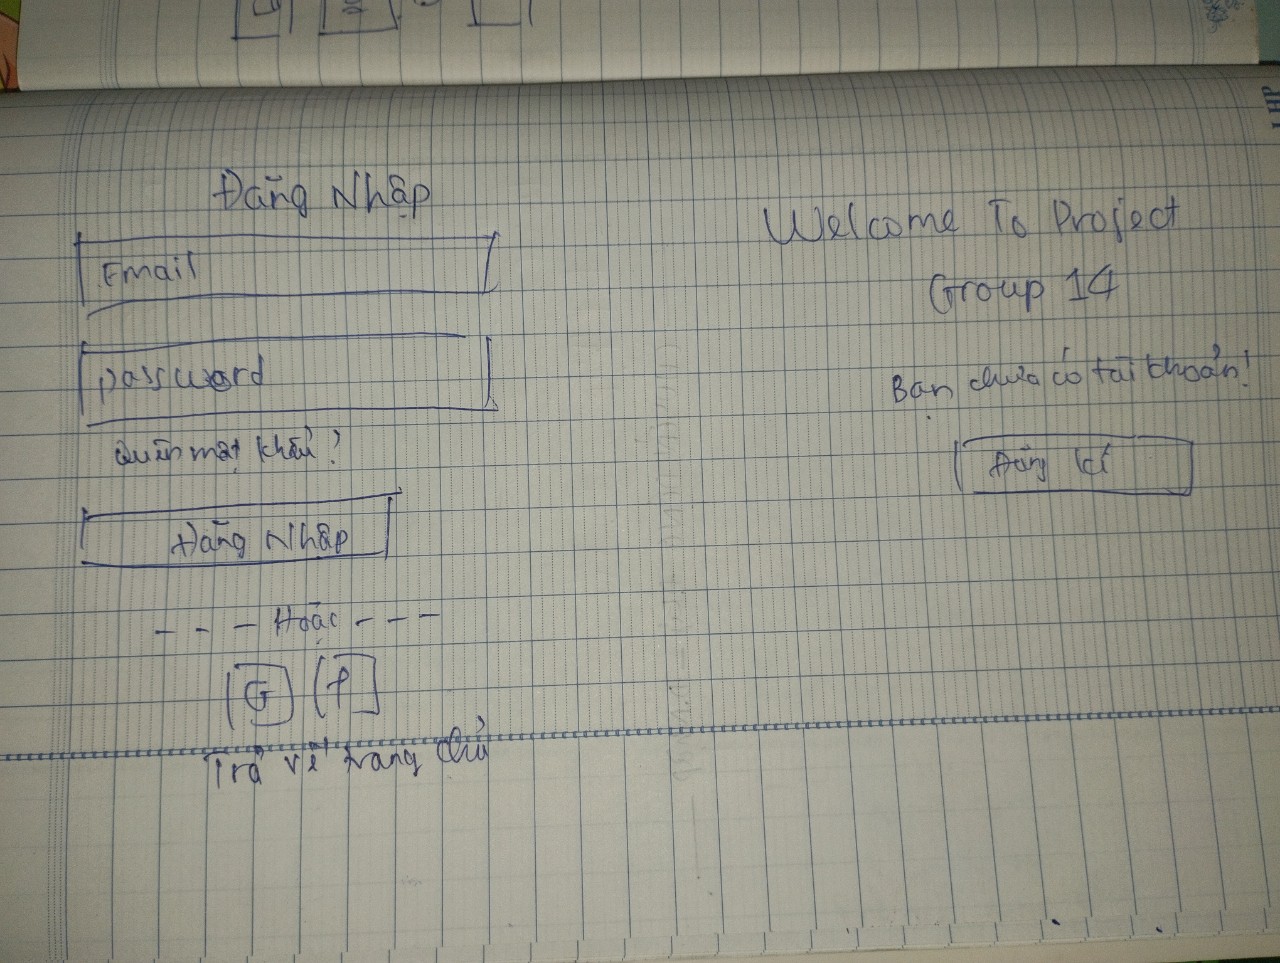 Đăng Nhập
Email
password
Quên mật khẩu?
Đăng Nhập
- - - Hoặc - - -
G f
Trở về trang chủ
Welcome To Project
Group 14
Bạn chưa có tài khoản!
Đăng kí